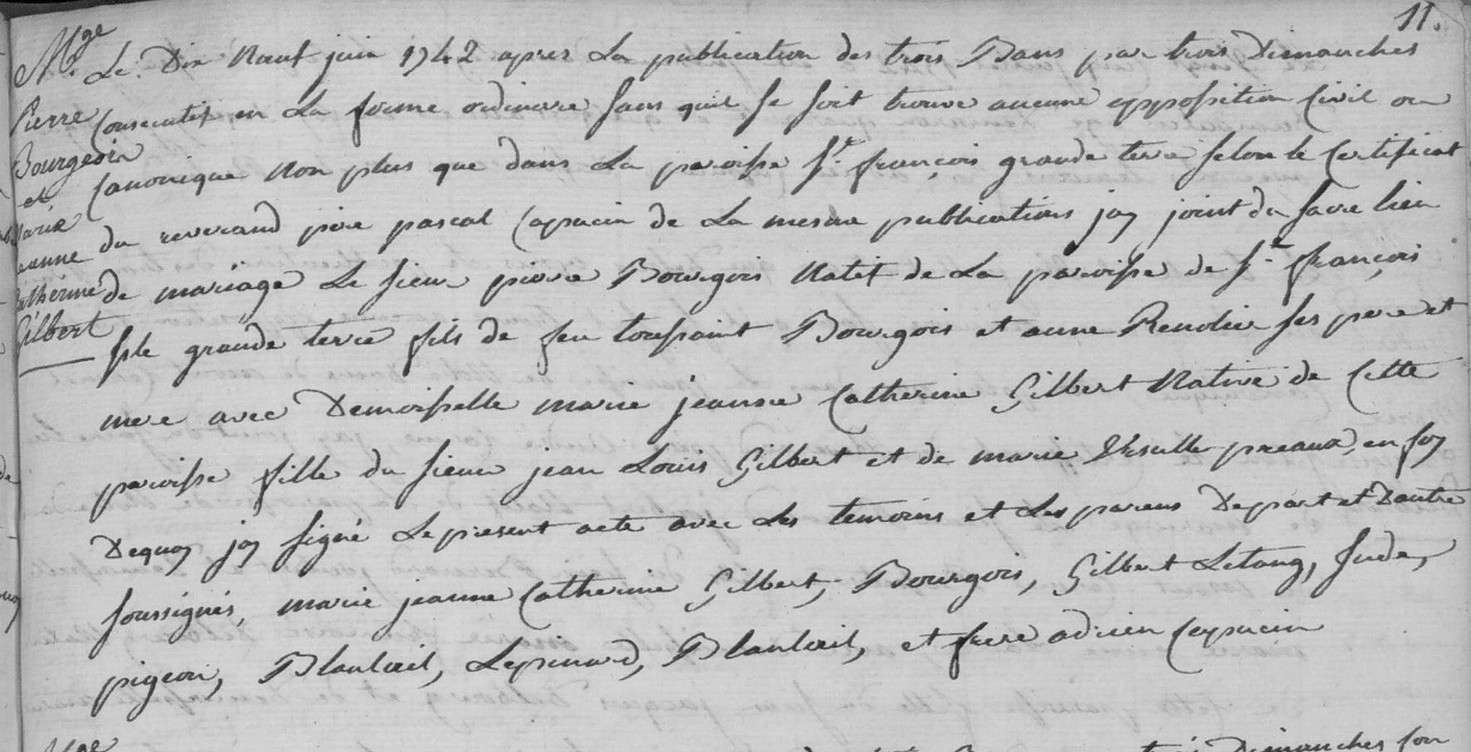 11.
Mge
Mr
Pierre
Bourgeois
et
Marie
Jeanne
Catherine
Gilbert
Le Dix Neuf juin 1742 apres La publication des trois Bans par trois Dimanches
Consecutif en La forme ordinere sans quil se soit trouvé aucune opposition Civil ou
Canonique Non plus que dans La paroisse St. françois grande terre selon le Certificat
du reverand pere pascal Capucin de La mesme publications jay joint du sacre lien
de mariage Le sieur pierre Bourgois Natif de La paroisse de St. françois
isle grande terre fils de feu toussaint Bourgois et anne Renolier ses pere et
mere avec Demoisselle marie jeanne Catherine Gilbert Native de Cette
paroisse fille du sieur jean Louis Gilbert et de marie Ursulle preaux, en foy
Dequoy jay signé Le present acte avec Les temoins et Les parens Depart et Dautre
soussignés, marie jeanne Catherine Gilbert, Bourgois, Gilbert Letang, Jude,
pigeon, Blanleil, Lepinard, Blanleil, et frere adrien Capucin
Mge
Dimanches Con